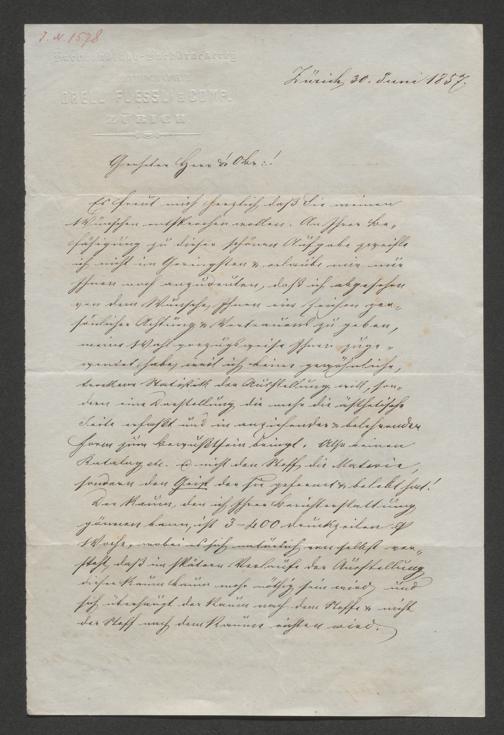 J. N. 1598
Buchhandlung & Buchdruckerei
ORELL FUESSLI & COMP.
ZÜRICH
Zürich, 30. Juni 1857.
Geehrter Herr & Obr.!
Es freut mich herzlich, daß Sie meinen
Wünschen entsprechen wollen. An Ihrer Be-
fähigung zu dieser schönen Aufgabe zweifle
ich nicht im Geringsten & erlaube mir nur
Ihnen noch anzudeuten, daß ich abgesehen
von dem Wunsche, Ihnen ein Zeichen per-
sönlicher Achtung & Vertrauens zu geben,
meine Wahl vorzugsweise Ihnen zuge-
wendet habe, weil ich keine gewöhnliche,
trockene Statistik der Ausstellung will, son-
dern eine Darstellung die mehr die ästhetische
Seite erfasst und in anziehender & belehrender
Form zum Bewußtsein bringt. Also keinen
Katalog etc. & nicht den Stoff, die Materie,
sondern den Geist der sie geformt & belebt hat!
Der Raum, den ich Ihrer Berichterstattung
gönnen kann, ist 3-400 Druckzeilen p
Woche, wobei es sich natürlich von selbst ver-
steht, daß im spätern Verlaufe der Ausstellung
dieser Raum kaum mehr nöthig sein wird und
sich überhaupt der Raum nach dem Stoffe & nicht
der Stoff nach dem Raume richten wird.